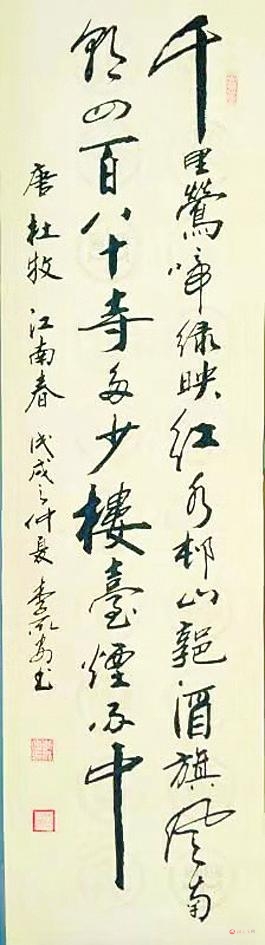 千里鶯啼绿映红水邨山郭酒旗风南
朝四百八十寺多少樓臺煙雨中
唐杜牧 江南春 戊戌之仲夏 李书